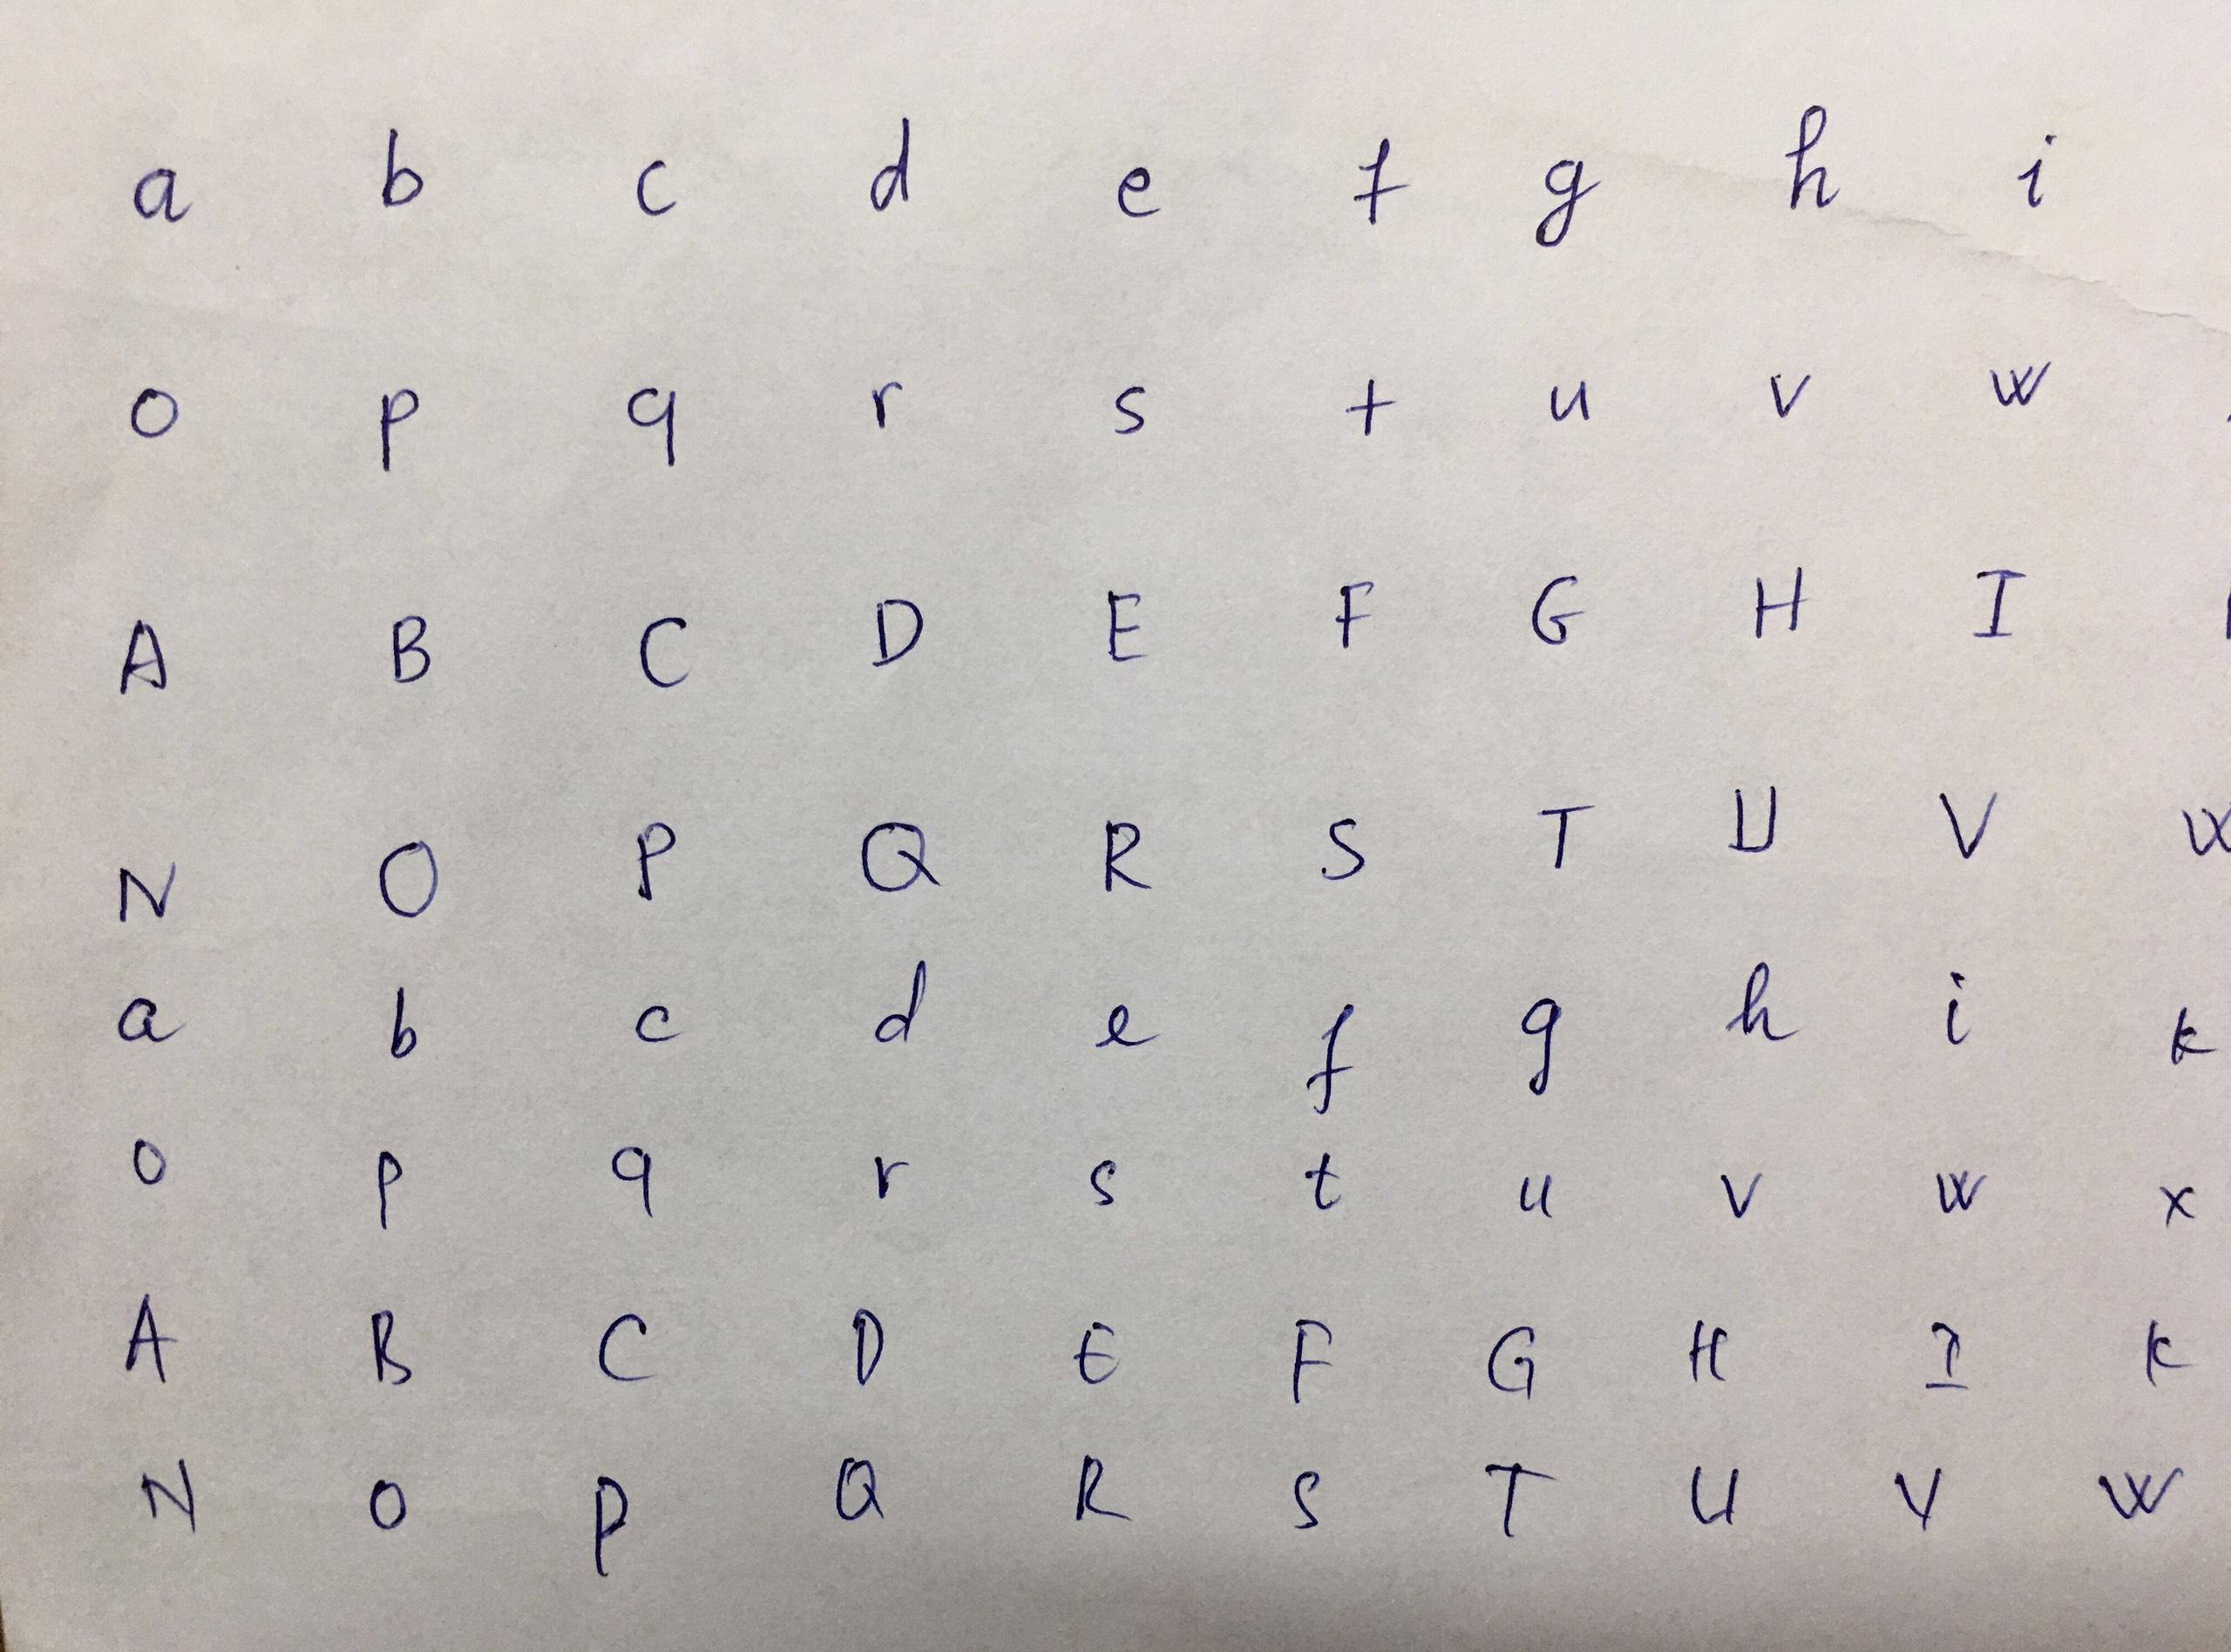 a b c d e f g h i
o p q r s t u v w
A B C D E F G H I
N O P Q R S T U V W
a b c d e f g h i k
o p q r s t u v w x
A B C D E F G H I K
N O P Q R S T U V W